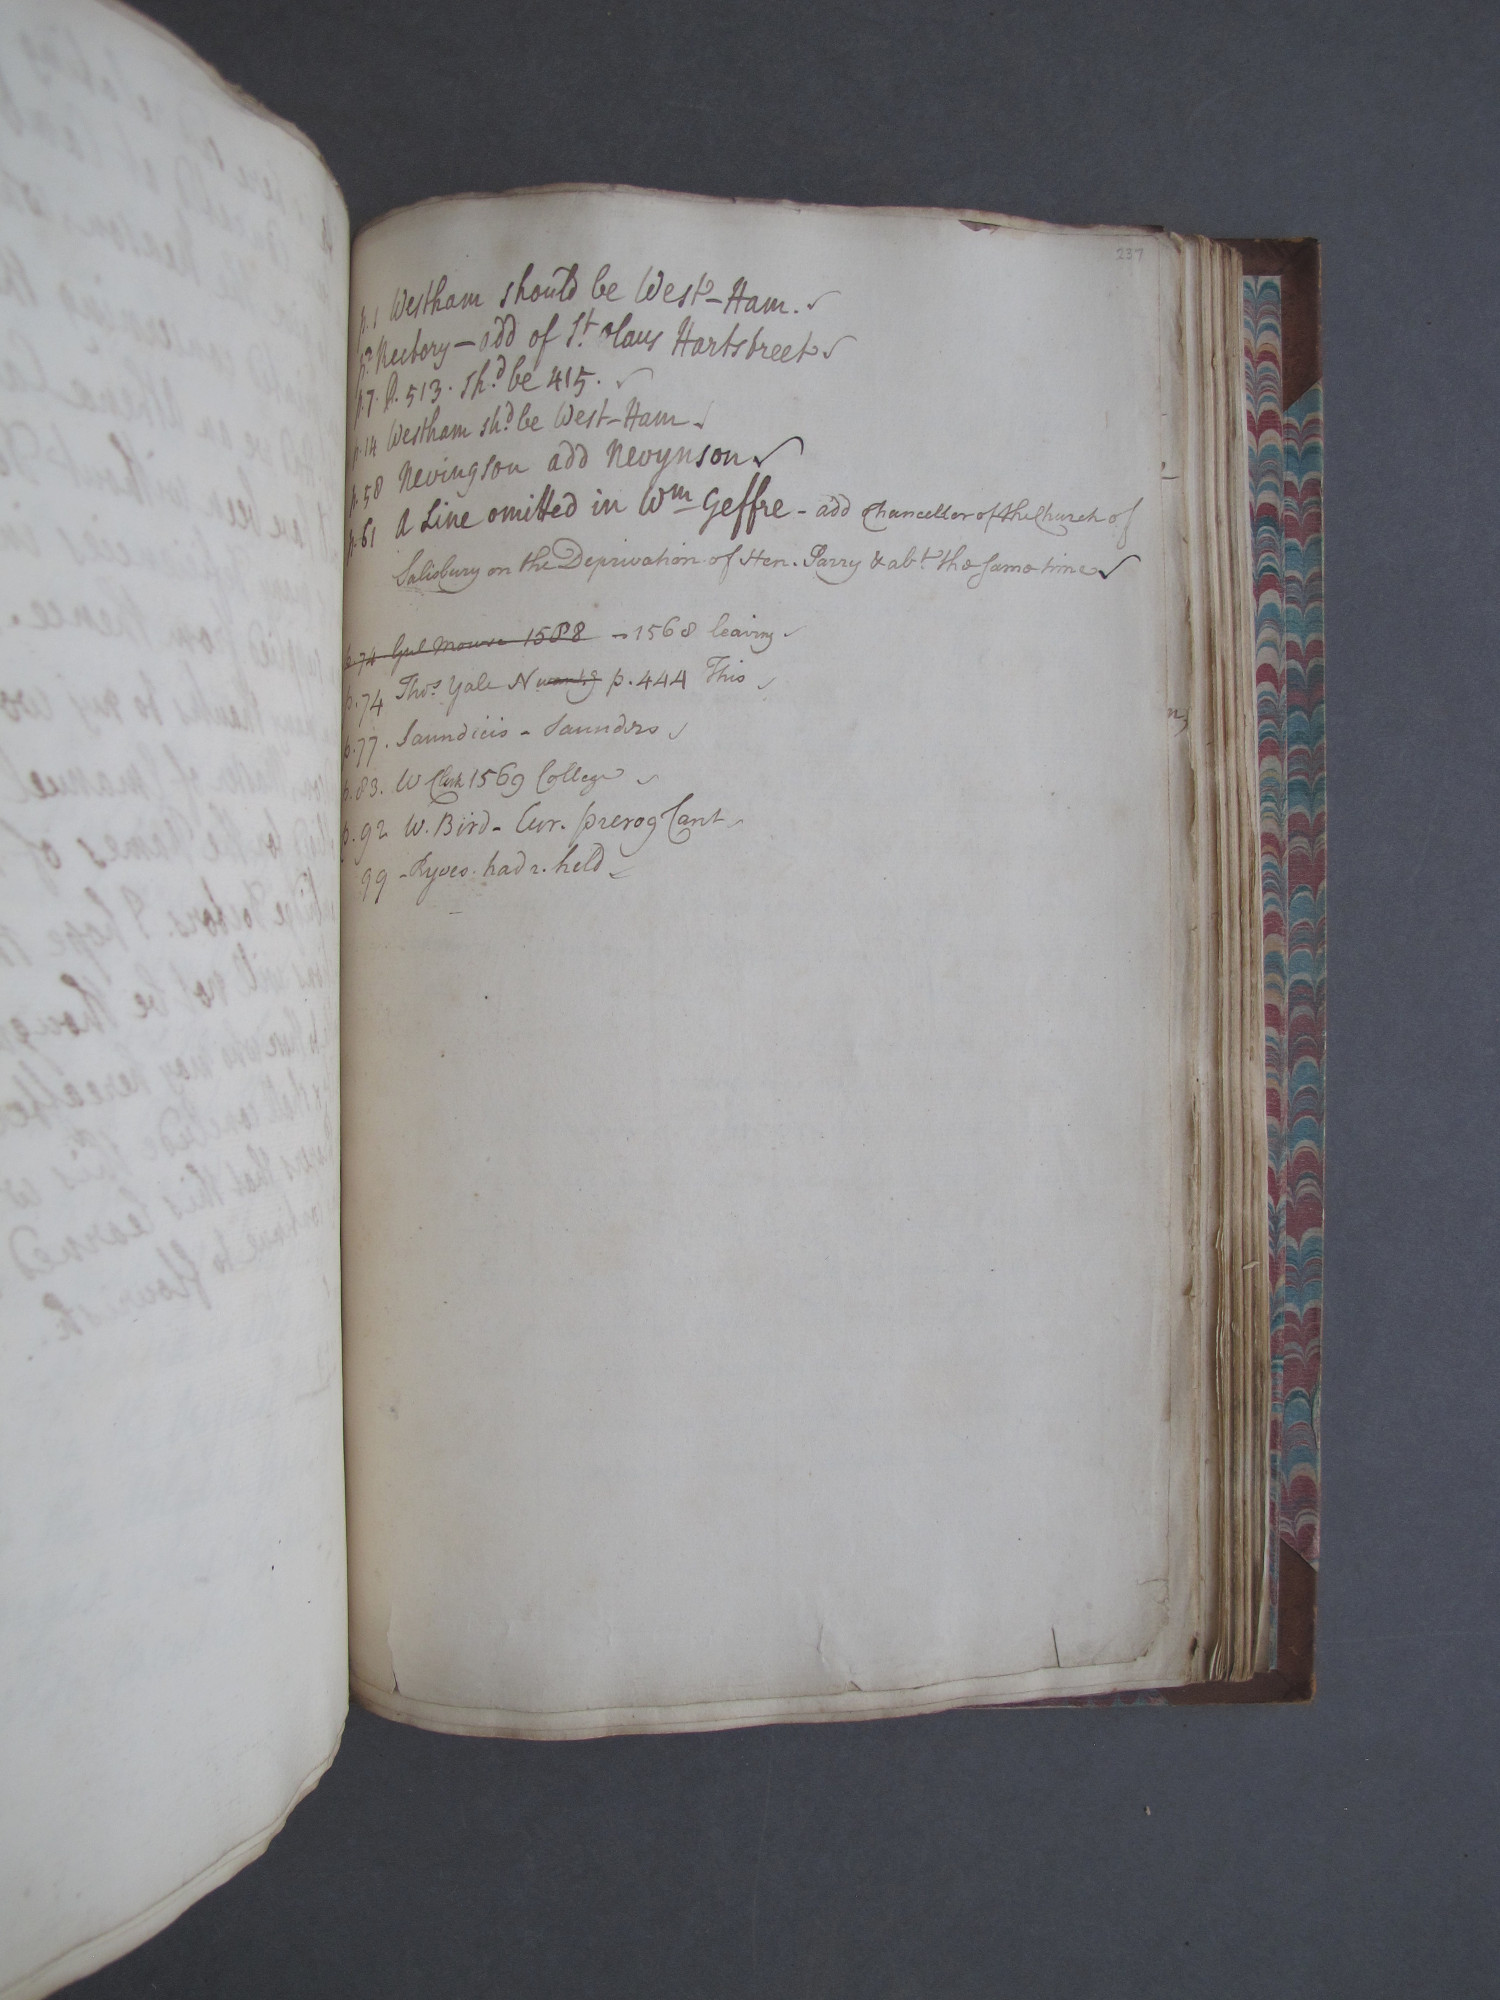 237
p. 1 Westham should be West-Ham. ✓
p. 2 Rectory — add of St. Olaus Hartstreet ✓
p. 7. A. 513. shd. be 415. ✓
p. 14 Westham shd. be West-Ham ✓
p. 58 Nevingson add Nevynson ✓
p. 61 A Line omitted in Wm Geffre - add Chancellor of the Church of
Salisbury on the Deprivation of Hen. Parry & abt. the same time ✓
p. 74 Gul Mowse 1588 - 1568 leaving ✓
p. 74 Thos. Yale N p. 444 This ✓
p. 77. Saundicis - Saunders ✓
p. 83. W Clerk 1569 College ✓
p. 92 W. Bird - Cur. prerog Cant ✓
99 - Ryves. had r. held ✓